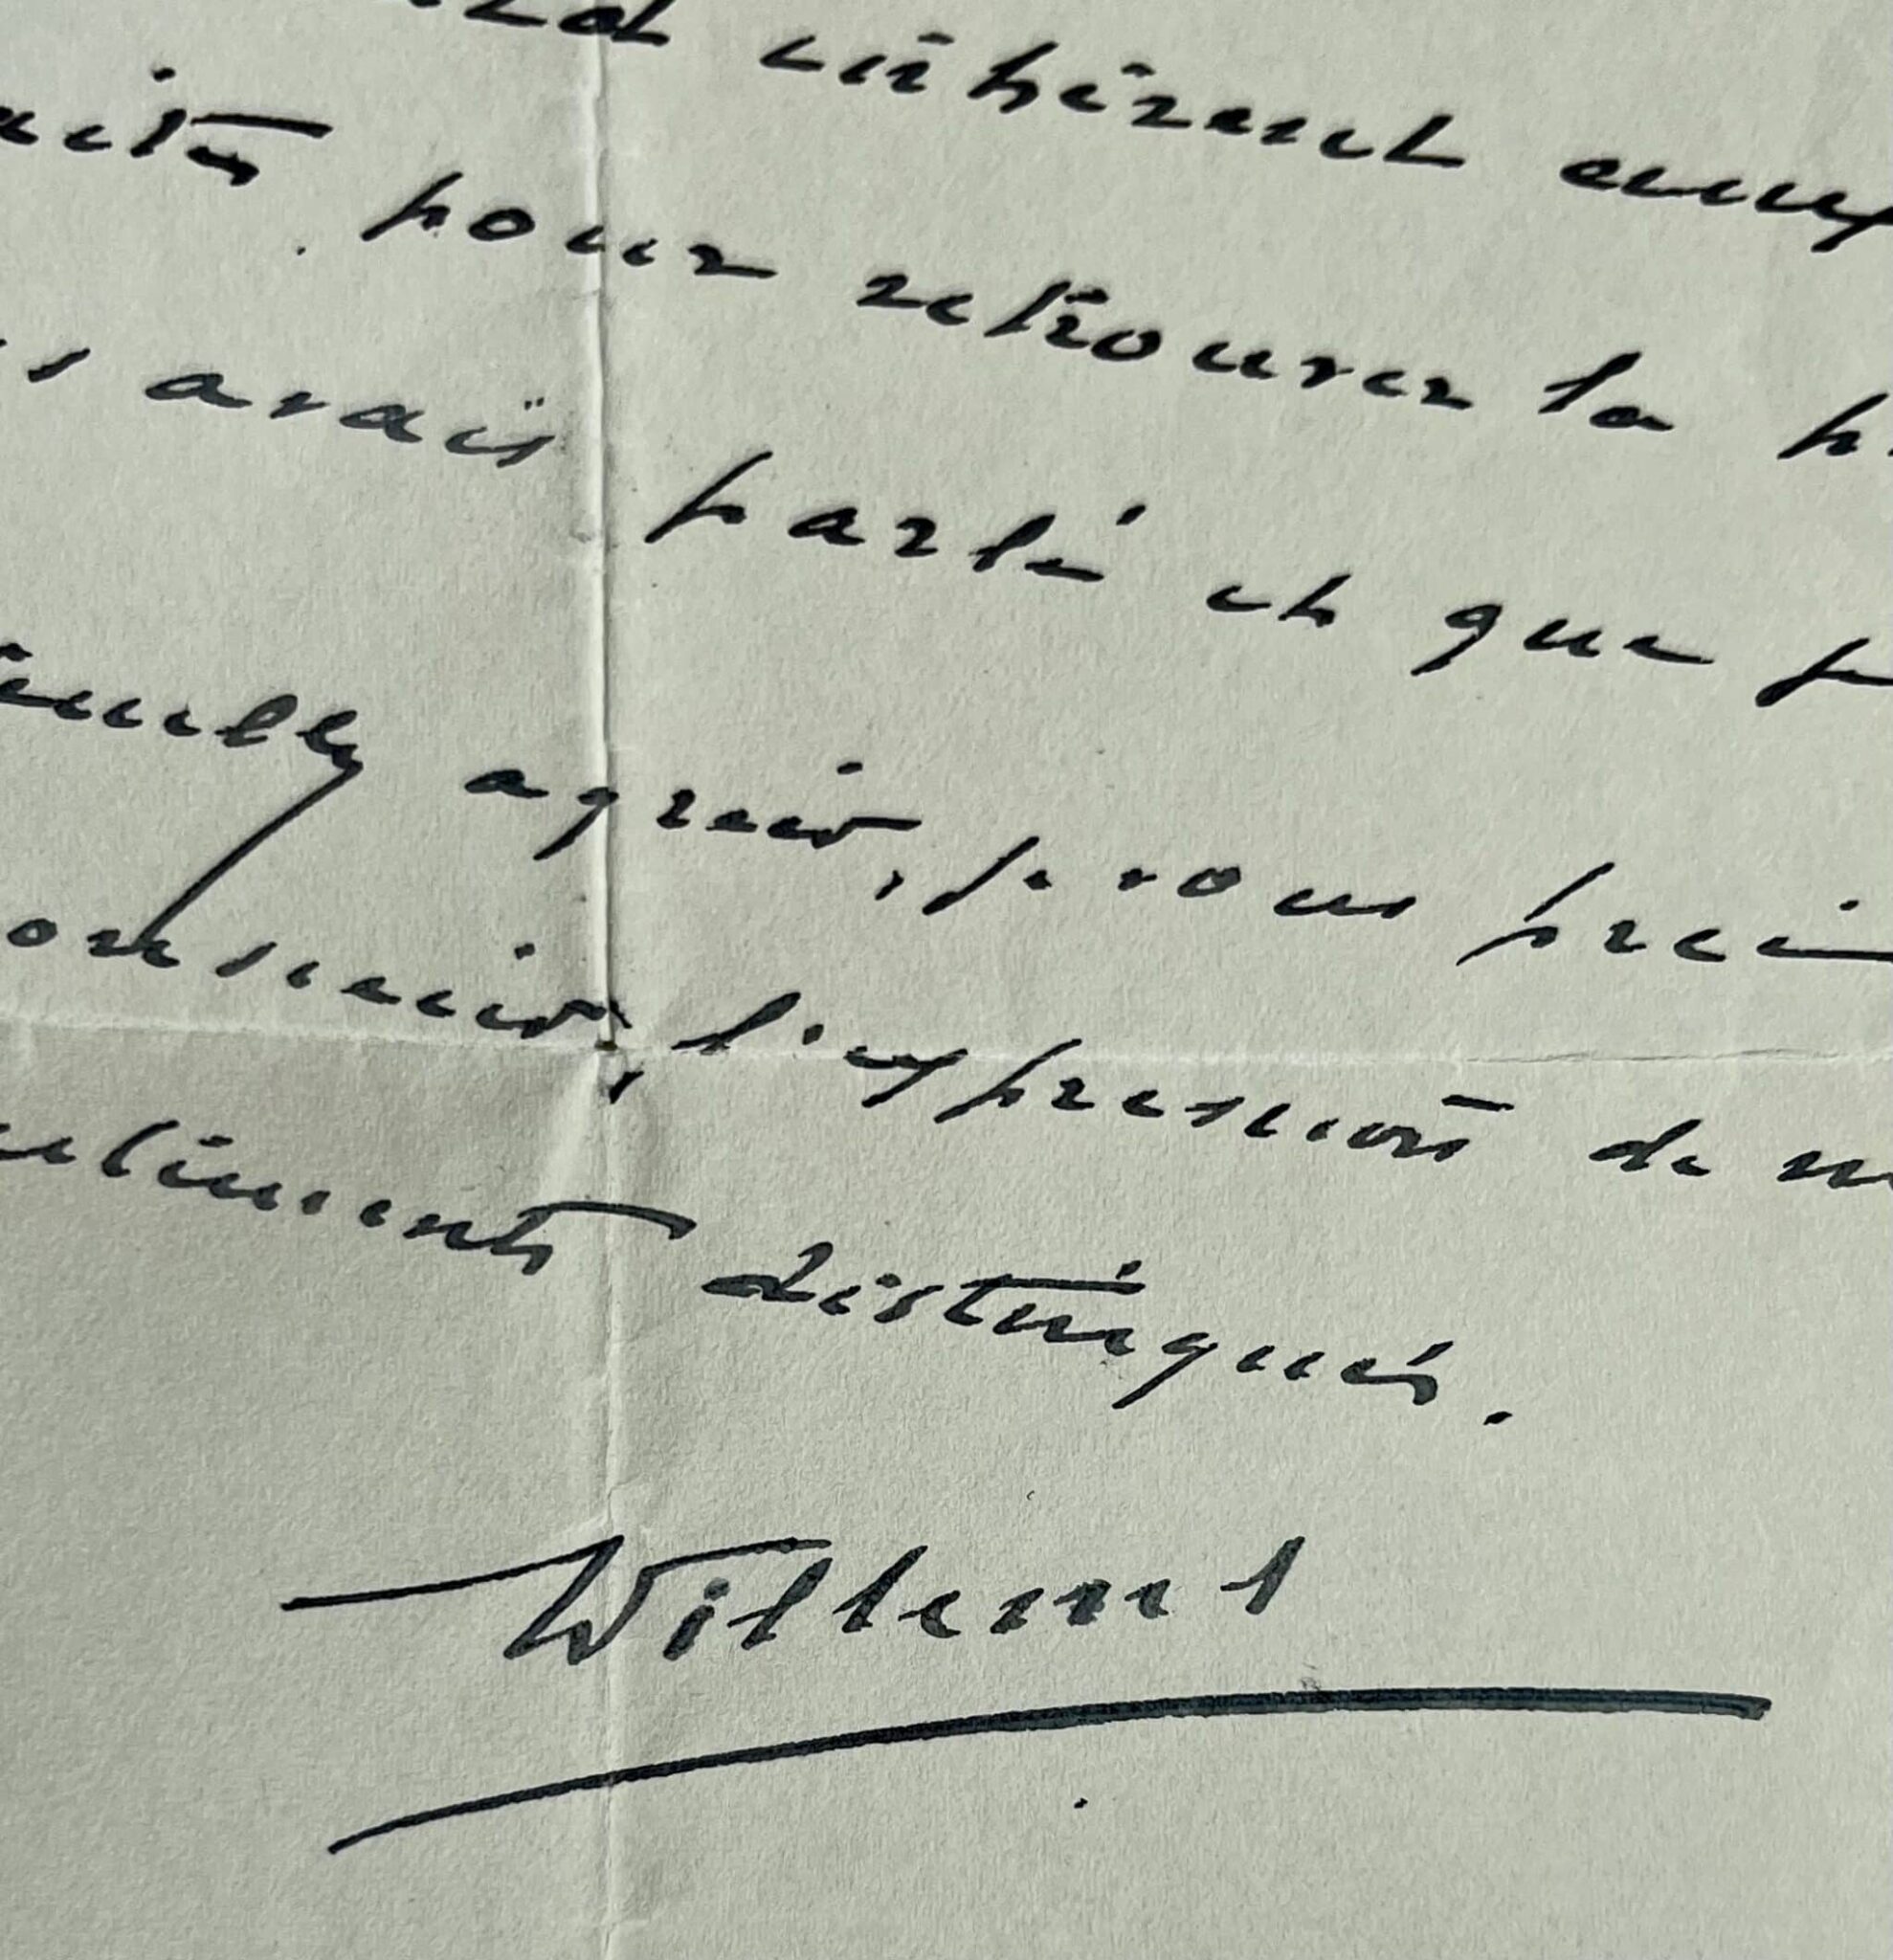 inhérent aux
pour retrouver la
avais parlé et que
agréer, je vous prie
l'expression de
distingués.
Willems